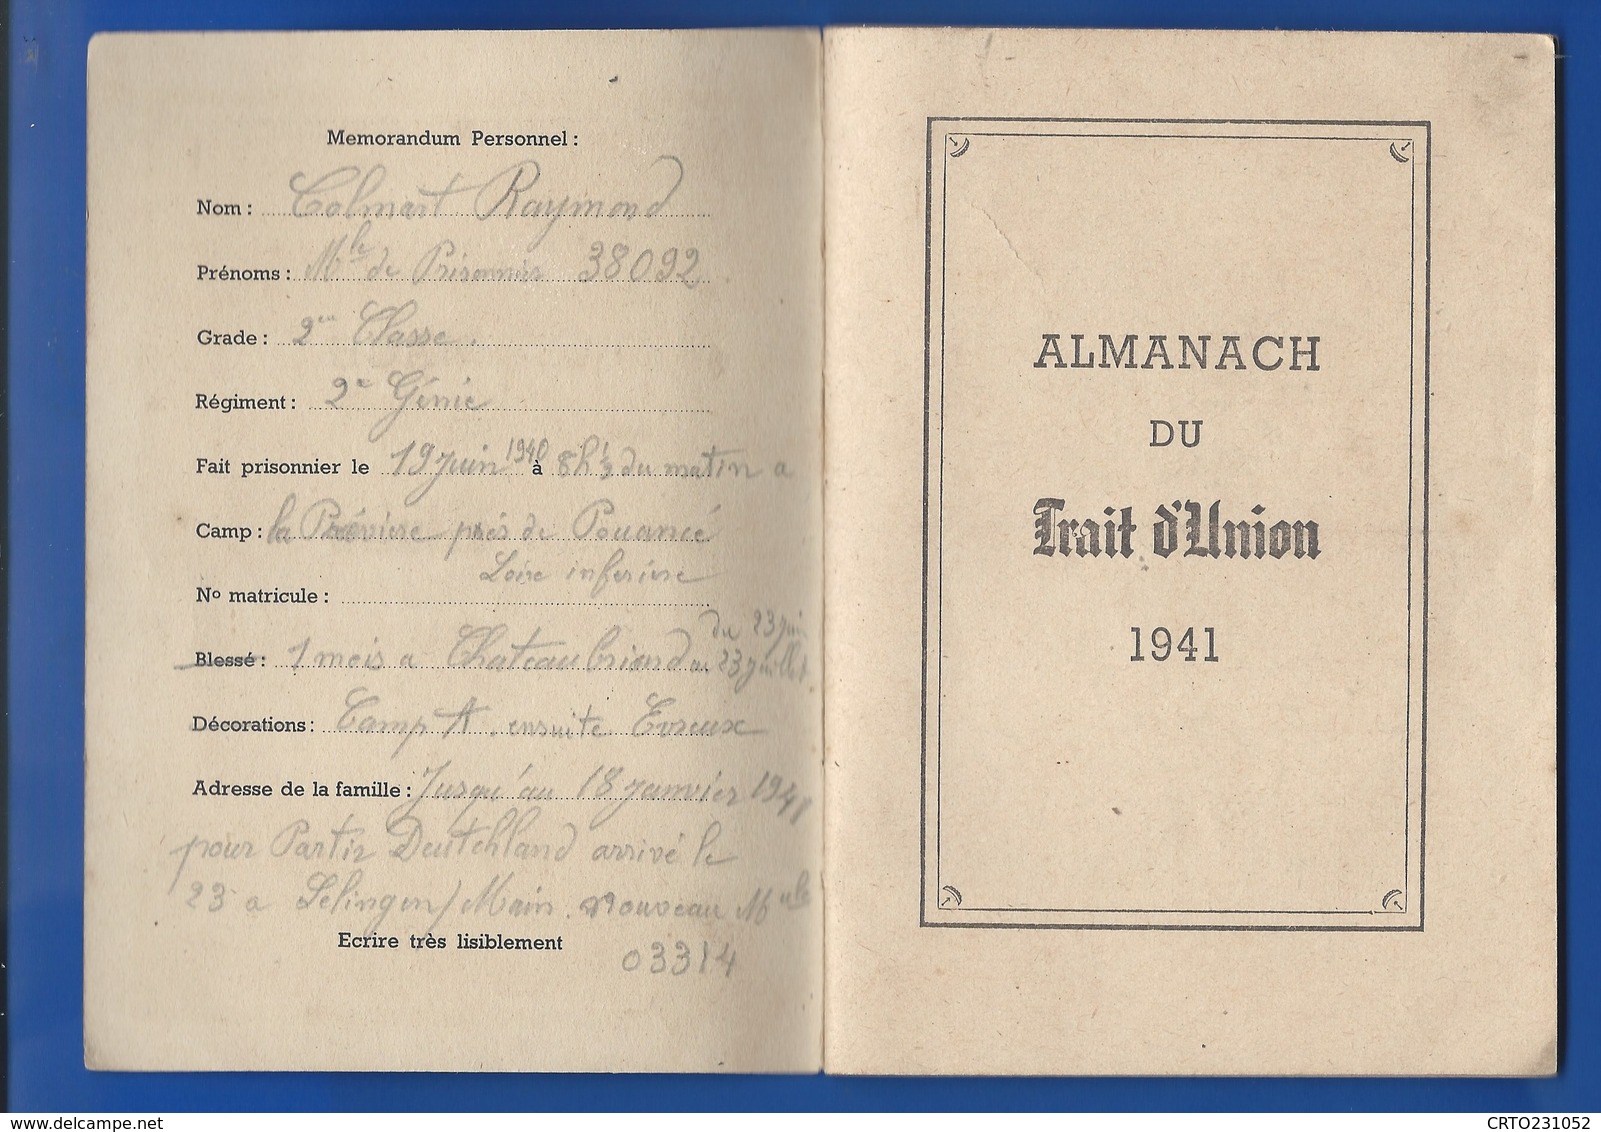 Memorandum Personnel :
Nom : Colmart Raymond
Prénoms : Mle de Prisonnier 38092
Grade : 2em Classe.
Régiment : 2e Génie
Fait prisonnier le 19 juin 1940 à 8h ½ du matin a
Camp : la Prévière près de Pouancé
Loire inferiere
No matricule :
du 23 juin
Blessé : 1 mois a Chateaubriand au 23 juillet.
Décorations : Camp A. ensuite Evreux
Adresse de la famille : Jusqu'au 18 janvier 1941
pour Partir Deutchland arrivé le
23 a Selingen/Main. nouveau Mule
Ecrire très lisiblement
03314
ALMANACH
DU
Trait d'Union
1941
CRTO231052